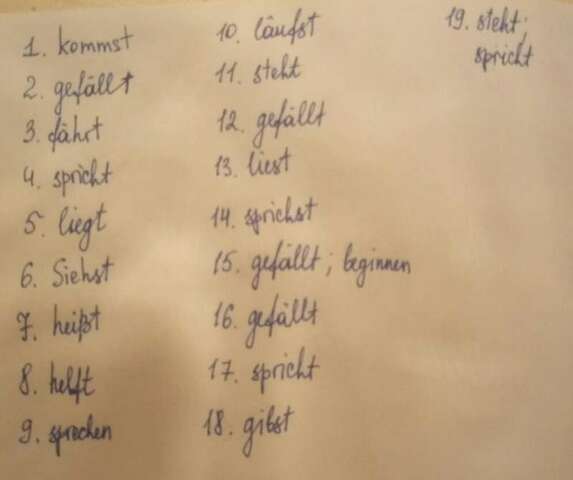 1. kommst
2. gefällt
3. fährt
4. spricht
5. liegt
6. Siehst
7. heißt
8. helft
9. sprechen
10. läufst
11. steht
12. gefällt
13. liest
14. sprichst
15. gefällt; beginnen
16. gefällt
17. spricht
18. gibst
19. steht;
spricht